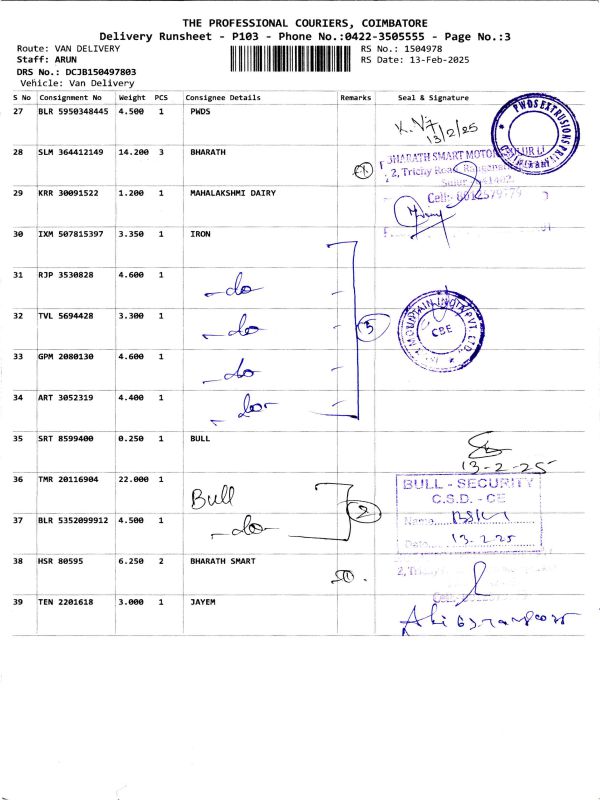 THE PROFESSIONAL COURIERS, COIMBATORE
Delivery Runsheet - P103 - Phone No.:0422-3505555 - Page No.:3
Route: VAN DELIVERY
RS No.: 1504978
Staff: ARUN
RS Date: 13-Feb-2025
DRS No.: DCJB150497803
Vehicle: Van Delivery
S No Consignment No Weight PCS Consignee Details Remarks Seal & Signature
27 BLR 5950348445 4.500 1 PWDS
13/2/25
PWDS EXTRUSIONS
28 SLM 364412149 14.200 3 BHARATH
BHARATH SMART MOTO
2, Trichy Road
29 KRR 30091522 1.200 1 MAHALAKSHMI DAIRY
Cell:-
30 IXM 507815397 3.350 1 IRON
31 RJP 3530828 4.600 1 -do
32 TVL 5694428 3.300 1 -do 5
MOUNTAIN INDIA PVT. LTD.
CBE
33 GPM 2080130 4.600 1 -do
34 ART 3052319 4.400 1 -do-
35 SRT 8599400 0.250 1 BULL
13-2-25
36 TMR 20116904 22.000 1 Bull 2
BULL - SECURITY
C.S.D. - CE
37 BLR 5352099912 4.500 1 -do-
Name
Date 13.2.25
38 HSR 80595 6.250 2 BHARATH SMART
39 TEN 2201618 3.000 1 JAYEM